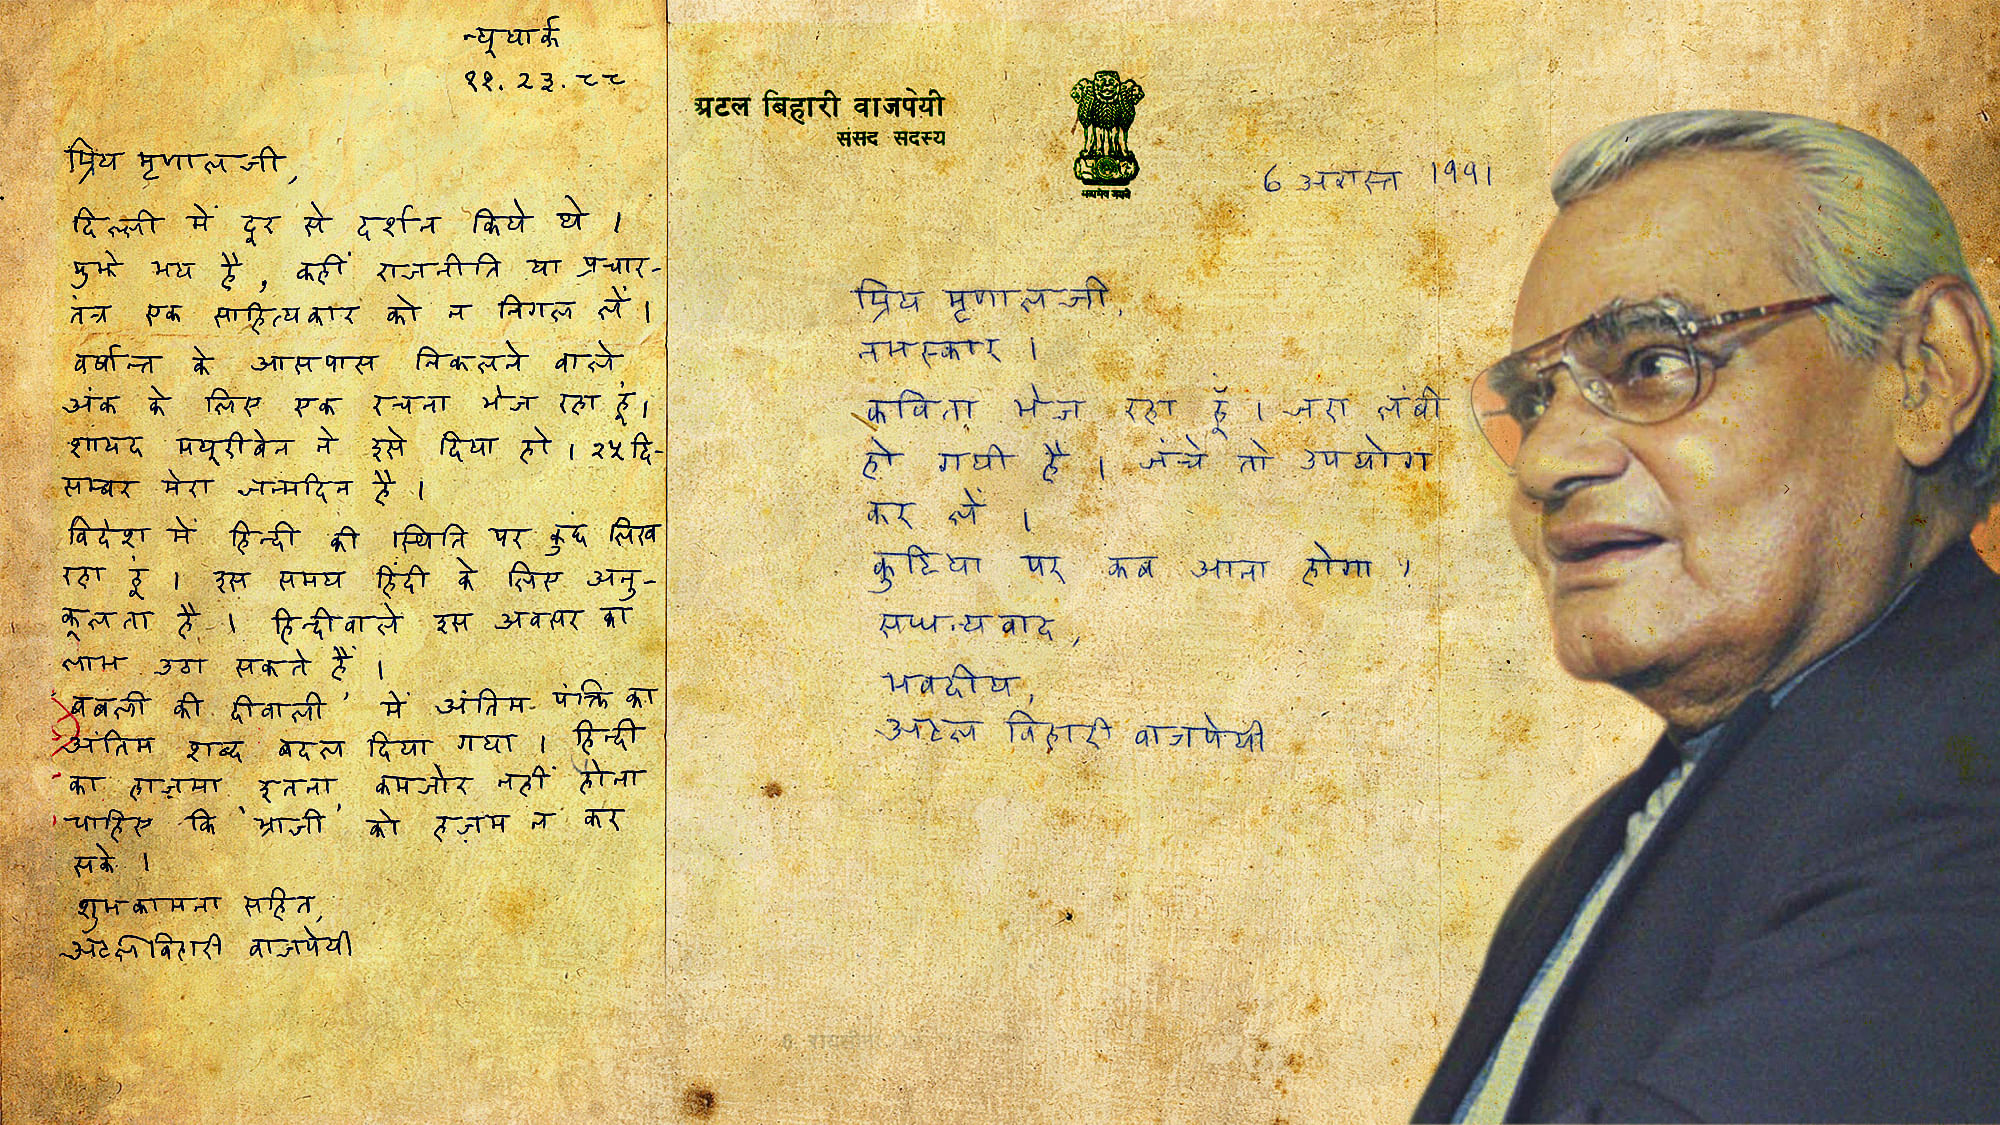 न्यूयार्क
११.२३.८८
प्रिय मृणालजी,
दिल्ली में दूर से दर्शन किये थे ।
मुझे भय है, कहीं राजनीति या प्रचार-
तंत्र एक साहित्यकार को न निगल लें ।
वर्षान्त के आसपास निकलने वाले
अंक के लिए एक रचना भेज रहा हूं ।
शायद मयूरीबेन ने इसे दिया हो । २५ दि-
सम्बर मेरा जन्मदिन है ।
विदेश में हिन्दी की स्थिति पर कुछ लिख
रहा हूं । इस समय हिंदी के लिए अनु-
कूलता है । हिन्दीवाले इस अवसर का
लाभ उठा सकते हैं ।
बबली की दीवाली' में अंतिम पंक्ति का
अंतिम शब्द बदल दिया गया । हिन्दी
का हाज़मा इतना कमजोर नहीं होना
चाहिए कि 'भाजी' को हज़म न कर
सके ।
शुभकामना सहित,
अटल बिहारी वाजपेयी
अटल बिहारी वाजपेयी
संसद सदस्य
सत्यमेव जयते
6 अगस्त 1991
प्रिय मृणालजी,
नमस्कार ।
कविता भेज रहा हूँ । जरा लंबी
हो गयी है । जंचे तो उपयोग
कर लें ।
कुटिया पर कब आना होगा ?
सधन्यवाद,
भवदीय,
अटल बिहारी वाजपेयी